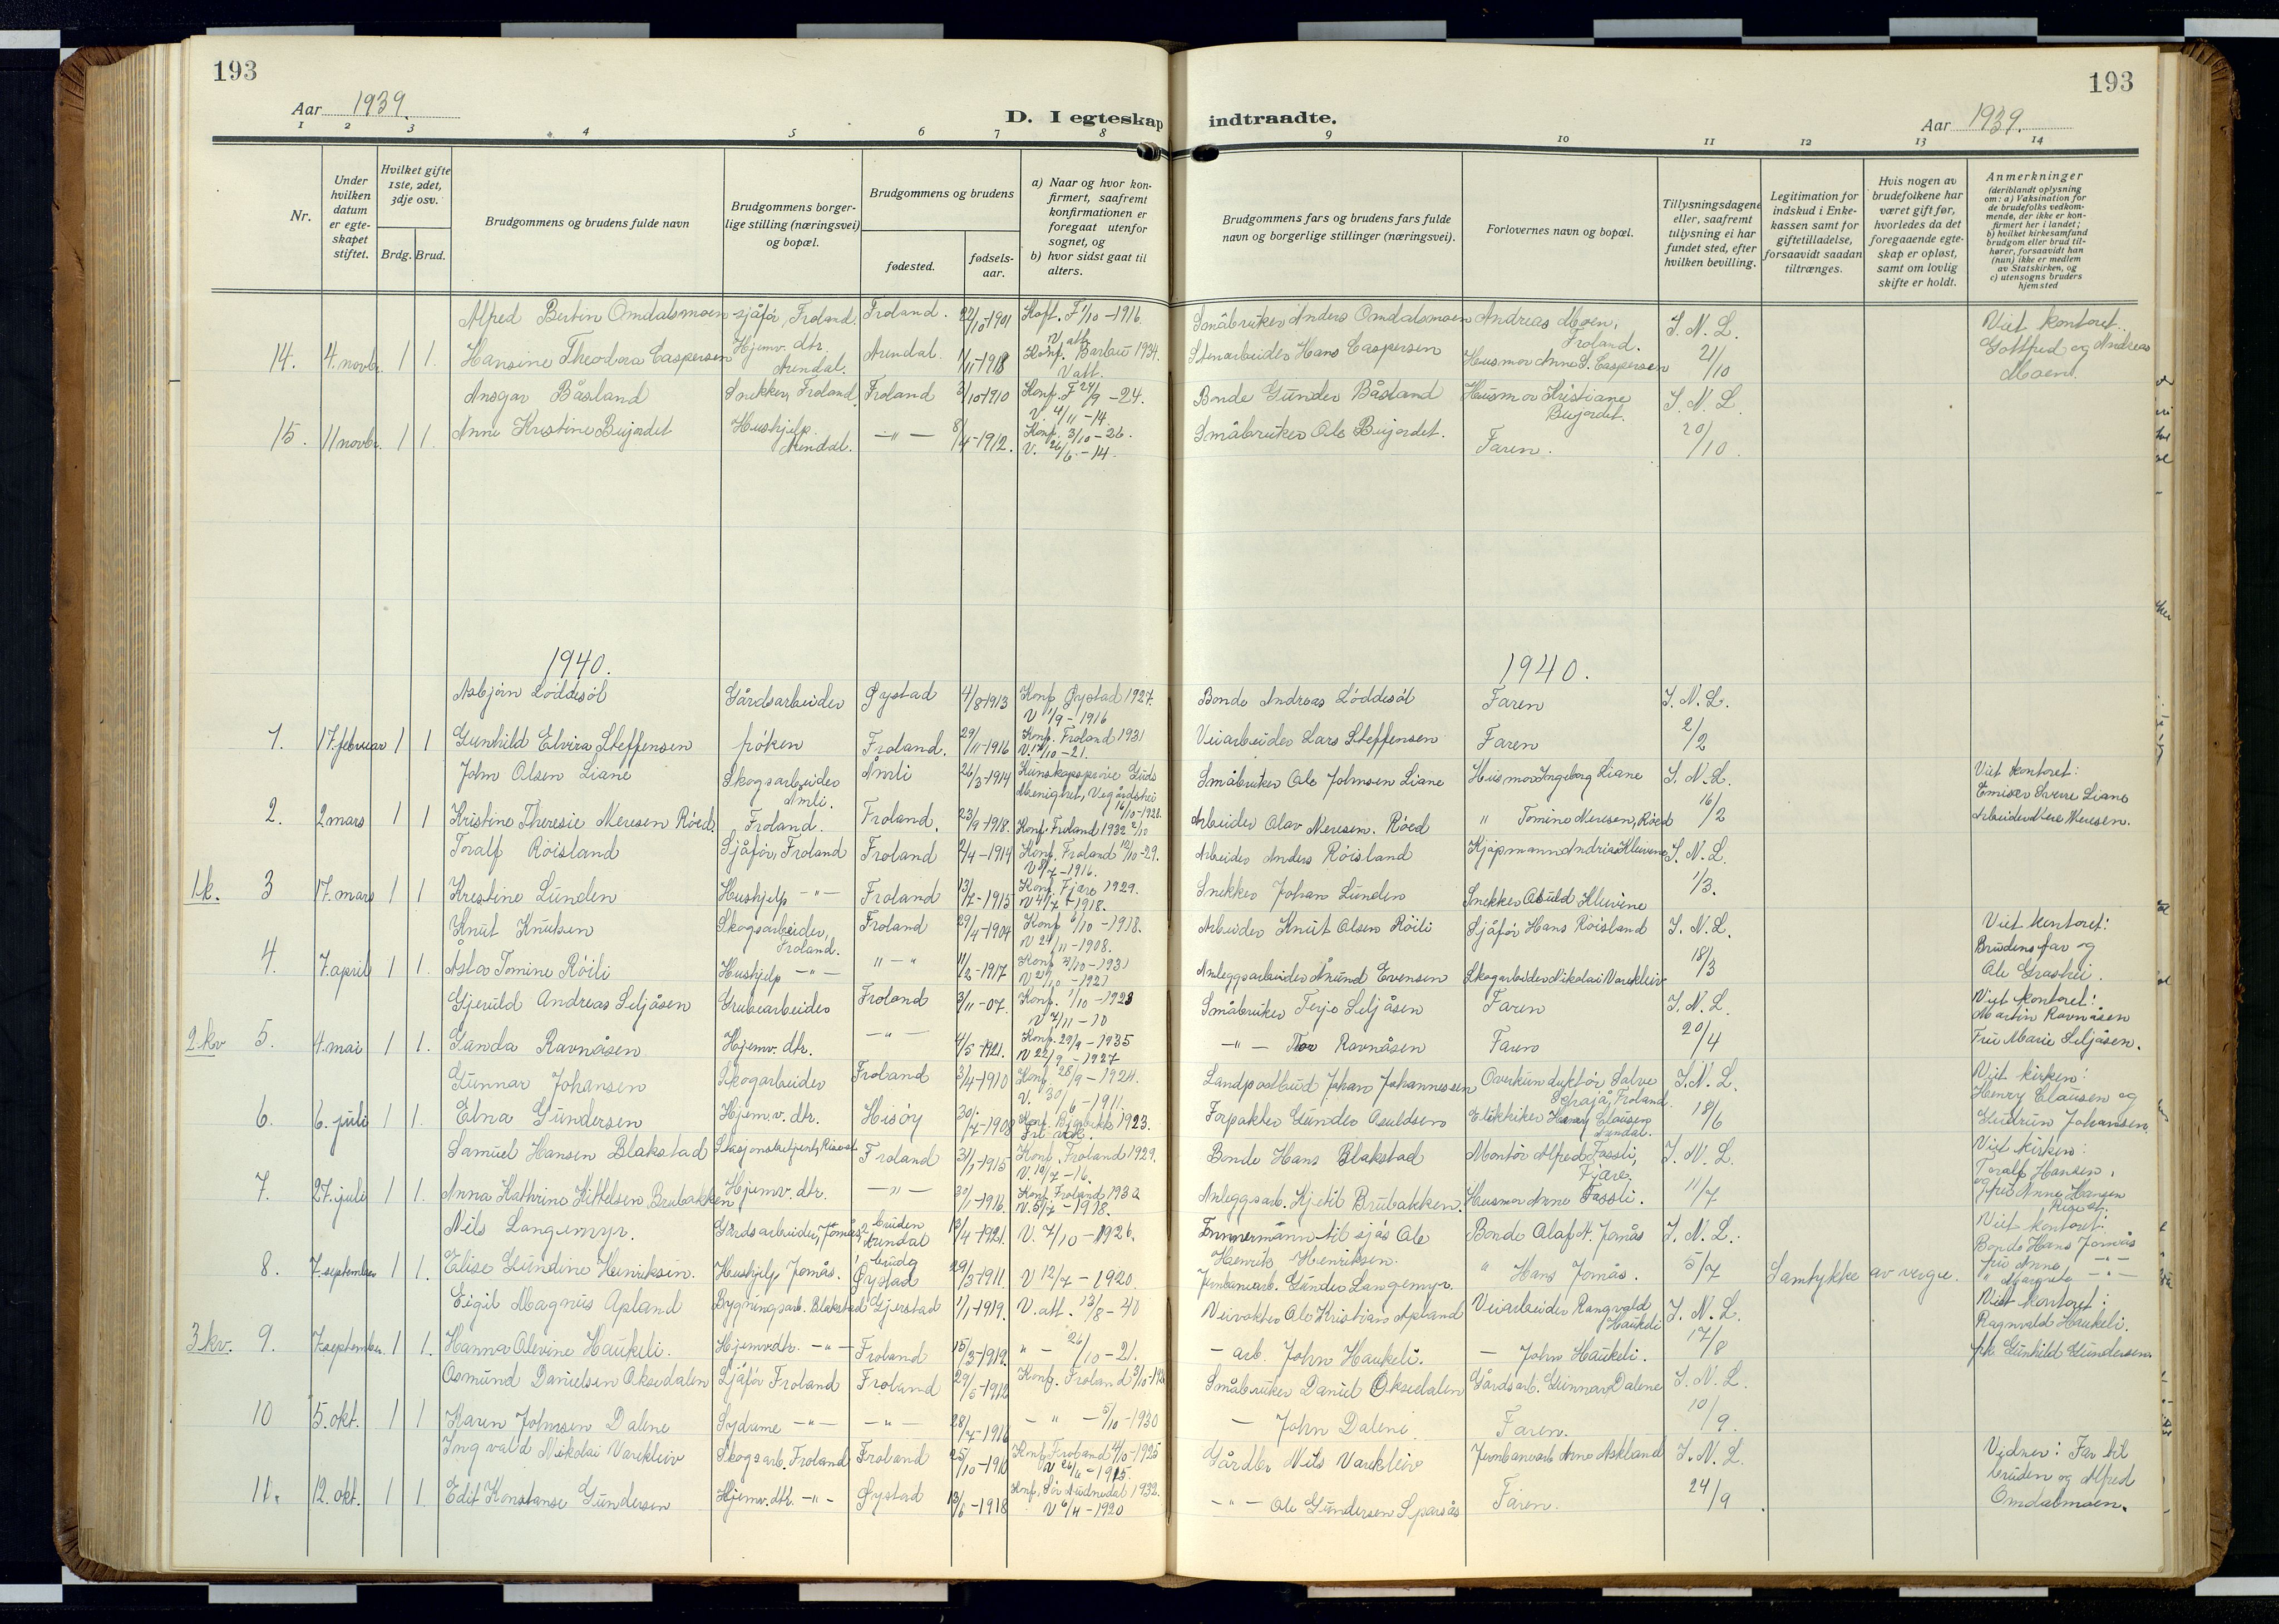 193
193
Aar 1939.
D. I egteskap indtraadte.
Aar 1939.
1 2 3 4 5 6 7 8 9 10 11 12 13 14
Nr.
Under hvilken datum er egteskapet stiftet.
Hvilket gifte 1ste, 2det, 3dje osv.
Brdg. Brud.
Brudgommens og brudens fulde navn
Brudgommens borgerlige stilling (næringsvei) og bopæl.
Brudgommens og brudens
fødested.
fødselsaar.
a) Naar og hvor konfirmert, saafremt konfirmationen er foregaat utenfor sognet, og
b) hvor sidst gaat til alters.
Brudgommens fars og brudens fars fulde navn og borgerlige stillinger (næringsvei).
Forlovernes navn og bopæl.
Tillysningsdagene eller, saafremt tillysning ei har fundet sted, efter hvilken bevilling.
Legitimation for indskud i Enkekassen samt for giftetilladelse, forsaavidt saadan tiltrænges.
Hvis nogen av brudefolkene har været gift før, hvorledes da det foregaaende egteskap er opløst, samt om lovlig skifte er holdt.
Anmerkninger
(deriblandt oplysning om: a) Vaksination for de brudefolks vedkommende, der ikke er konfirmert her i landet; b) hvilket kirkesamfund brudgom eller brud tilhører, forsaavidt han (hun) ikke er medlem av Statskirken, og c) utensogns bruders hjemsted
Alfred Bertin Omdalsmoen sjåfør, Froland. Froland. 22/10-1901 Konf. F 1/10-1916. V. att. Småbruker Anders Omdalsmoen Andreas Moen, Froland. S. N. L. Viet kontoret.
14. 4. novbr. 1 1. Hansine Theodora Caspersen Hjemv. dtr. Arendal. Arendal. 1/11-1918 Konf. Barbu 1934. V att. Stenarbeider Hans Caspersen Husmor Anne S. Caspersen 21/10 Gottfred og Andreas Moen.
Ansgar Båsland Snekker, Froland. Froland 3/10-1910 Konf. F 24/9-24. V. 4/11-14. Bonde Gunder Båsland Husmor Kristiane Bujordet. S. N. L.
15. 11 novbr. 1 1. Anne Kristine Bujordet Hushjelp. Arendal. -"- 8/4-1912. Konf. 3/10-26. V. 26/6-14. Småbruker Ole Bujordet. Faren. 20/10.
1940.
1940.
Asbjørn Løddesøl Gårdsarbeider Øystad 4/8-1913 Konf Øystad 1927. V 1/9-1916 Bonde Andreas Løddesøl Faren S. N. L.
1. 17. februar 1 1 Gunhild Elvira Steffensen frøken Froland. 29/11-1916 Konf. Froland 1931 V. 12/10-21. Veiarbeider Lars Steffensen Faren 2/2
John Olsen Liane Skogsarbeider Åmli. Åmli 26/3-1914 Kunskapsprøve Guds Menighet, Vegårdshei 16/10-1928. Småbruker Ole Johnsen Liane Husmor Ingeborg Liane S. N. L. Viet kontoret:
2. 2 mars 1 1 Kristine Theresie Neresen Røed. Froland. Froland. 23/9-1918. Konf. Froland 1932 2/10 Arbeider Olav Neresen. Røed " Tomine Neresen, Røed 16/2 Emisær Sverre Liane Arbeider Nere Neresen.
Toralf Røisland Sjåfør, Froland Froland 2/4-1914 Konf. Froland 12/10-29. V 8/7-1916. Arbeider Anders Røisland Kjøpmann Andreas Kleivene S. N. L.
1.k. 3 17. mars 1 1 Kristine Lunden Hushjelp -"- Froland 13/7-1915 Konf. Fjære 1929. V 4/7-1918. Snekker Johan Lunden Snekker Osuld Kleivene 1/3.
Knut Knutsen Skogsarbeider, Froland. Froland 29/4-1904 Konf 6/10-1918. V 24/11-1908. Arbeider Knut Olsen Røili Sjåfør Hans Røisland S. N. L. Viet kontoret:
4. 7. april 1 1. Åsta Tomine Røili Hushjelp -"- "-" 11/2-1917 V 21/10-1921 Anleggsarbeider Ånund Evensen Skogarbeider Nikolai Varekleiv 18/3 Brudens far og Ole Grashei.
Gjeruld Andreas Seljåsen Grubearbeider Froland 3/11-07. Konf. 1/10-1923 V 7/11-10 Småbruker Terje Seljåsen Faren S. N. L. Viet kontoret: Martin Ravnåsen
2.kv 5. 4. mai 1 1. Ganda Ravnåsen Hjemv. dtr. -"- 4/5-1921. Konf. 29/9-1935 V 22/9-1927 -"- Tor Ravnåsen Faren 20/4 Fru Marie Seljåsen.
Gunnar Johansen Skogarbeider Froland 3/4-1910 Konf. 28/9-1924. V. 30/6-1911. Landpostbud Johan Johannessen Overkunduktør Salve Skajå, Froland. S. N. L. Viet kirken:
6. 6. juli 1 1. Elna Gundersen Hjemv. dtr. Hisøy 30/7-1908 Konf. Bjorbekk 1923. Forpakter Gunder Osuldsen Elektriker Henry Clausen Arendal. 18/6 Henry Clausen og Gudrun Johansen.
Samuel Hansen Blakstad Stasjonsbetjent, Rise st. Froland 31/1-1915 Konf. Froland 1929. V. 19/7-16. Bonde Hans Blakstad Montør Alfred Fossli, Fjære. S. N. L. Viet kirken:
7. 27. juli 1 1. Anna Kathrine Kittelsen Brubakken Hjemv. dtr. -"- 30/1-1916. Konf Froland 1932 V. 5/7-1918. Anleggsarb. Kjetil Brubakken. Husmor Anne Fossli. 11/7 Toralf Hansen, og fru Anne Hansen Rise st.
Nils Langemyr. Gårdsarbeider, Jomås, 2 bruden Arendal 13/4-1921. V. 7/10-1926. Tømmermann til sjøs Ole Henrik Henriksen. Bonde Olaf H. Jomås S. N. L. Viet kontoret: Bonde Hans Jomås
8. 7. september 1 1. Elise Gundine Henriksen. Hushjelp Jomås. Øystad 29/3-1911. V 12/7-1920. Jernbanearb. Gunder Langemyr. " Hans Jomås. 5/7 Samtykke av verge. fru Anne -"- " Margrete -"-
Eigil Magnus Apland Bygningsarb. Blakstad Gjerstad 1/1-1919. V. att. 13/8-40 Veivokter Ole Kristian Apland Veiarbeider Rangvald Haukeli S. N. L. Viet kontoret:
3.kv. 9. 7. september. 1 1. Hanna Olevine Haukeli. Hjemv. dtr. -"- Froland 15/3-1919. "- 26/10-21. - arb. John Haukeli. - John Haukeli. 17/8 Ragnvald Haukeli. frk Gunhild Gundersen.
Osmund Danielsen Oksedalen Sjåfør Froland Froland 29/5-1912 Konf. Froland Småbruker Daniel Oksedalen Gårdsarb. Gunnar Dalene S. N. L.
10 5. okt. 1 1 Karen Johnsen Dalene Sydame -"- -"- 28/7-1916 -"- 5/10-1930 - John Dalene. Faren. 10/9.
Ingvald Nikolai Varekleiv Skogsarb. Froland Froland 25/10-1910 Konf Froland 4/10-1925 V 26/6-1915. Gårdbr Nils Varekleiv Jernbanearb Arne Askland S. N. L. Vidner: Far til
11. 12. okt. 1 1. Edit Konstanse Gundersen Hjemv. dtr. -"- Øystad 13/6-1918 Konf, Sør Audnedal 1932. V 6/11-1920 -"- Ole Gundersen Sparsås Faren. 24/9. bruden og Alfred Omdalsmoen.